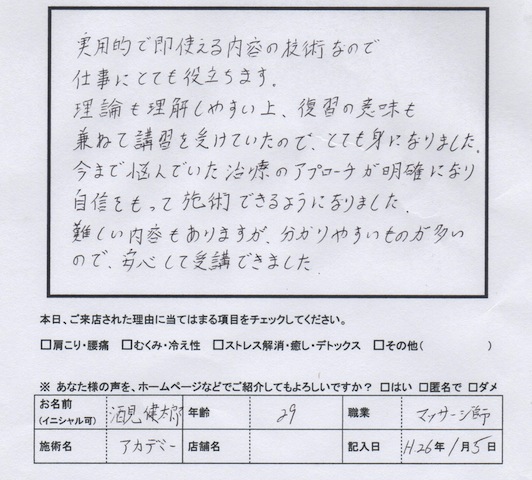 実用的で即使える内容の技術なので
仕事にとても役立ちます。
理論も理解しやすい上、復習の意味も
兼ねて講習を受けていたので、とても身になりました。
今まで悩んでいた治療のアプローチが明確になり
自信をもって施術できるようになりました。
難しい内容もありますが、分かりやすいものが多い
ので、安心して受講できました
本日、ご来店された理由に当てはまる項目をチェックしてください。
□肩こり・腰痛 □むくみ・冷え性 □ストレス解消・癒し・デトックス □その他( )
※ あなた様の声を、ホームページなどでご紹介してもよろしいですか? □はい □匿名で □ダメ
お名前 (イニシャル可) 酒見健太郎 年齢 29 職業 マッサージ師
施術名 アカデミー 店舗名 記入日 H26年1月5日